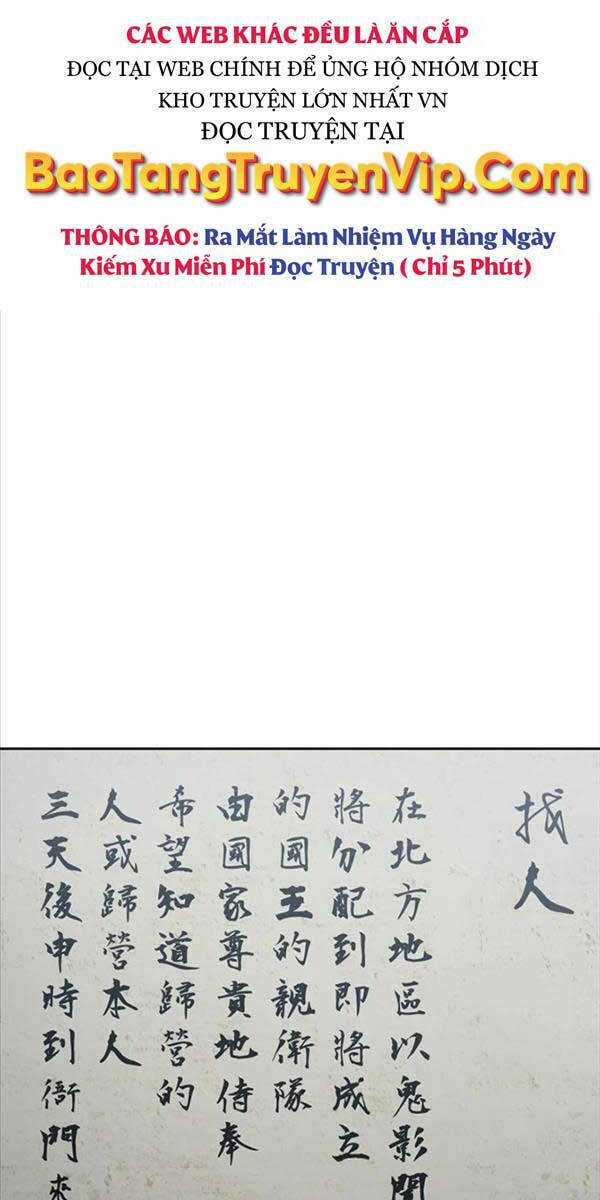 CÁC WEB KHÁC ĐỀU LÀ ĂN CẮP
ĐỌC TẠI WEB CHÍNH ĐỂ ỦNG HỘ NHÓM DỊCH
KHO TRUYỆN LỚN NHẤT VN
ĐỌC TRUYỆN TẠI
BaoTangTruyenVip.Com
THÔNG BÁO: Ra Mắt Làm Nhiệm Vụ Hàng Ngày
Kiếm Xu Miễn Phí Đọc Truyện ( Chỉ 5 Phút)
找人
在北方地區以鬼影聞
將分配到即將成立
的國王的親衛隊
由國家尊貴地侍奉
希望知道歸營的
人或歸營本人
三天後申時到衙門來